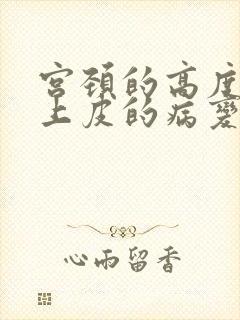 宫颈的高度
上皮的病变
心雨留香